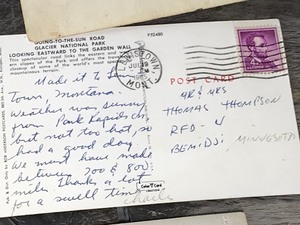 GOING-TO-THE-SUN ROAD
GLACIER NATIONAL PARK
LOOKING EASTWARD TO THE GARDEN WALL
This spectacular road links the eastern and
ern slopes of the Park and offers the
of some of the world's most
mountainous terrain.
F72480
LEWISTOWN
MONT.
POST CARD
Made it to
Town, Montana.
Weather was sunny
from Park Rapids on,
but not too hot, so
had a good day
We must have made
between 700 & 800
miles. Thanks a lot
for a swell time
Charlie
MR & MRS
THOMAS THOMPSON
RED-N
BEMIDJI MINNESOTA
Color Card